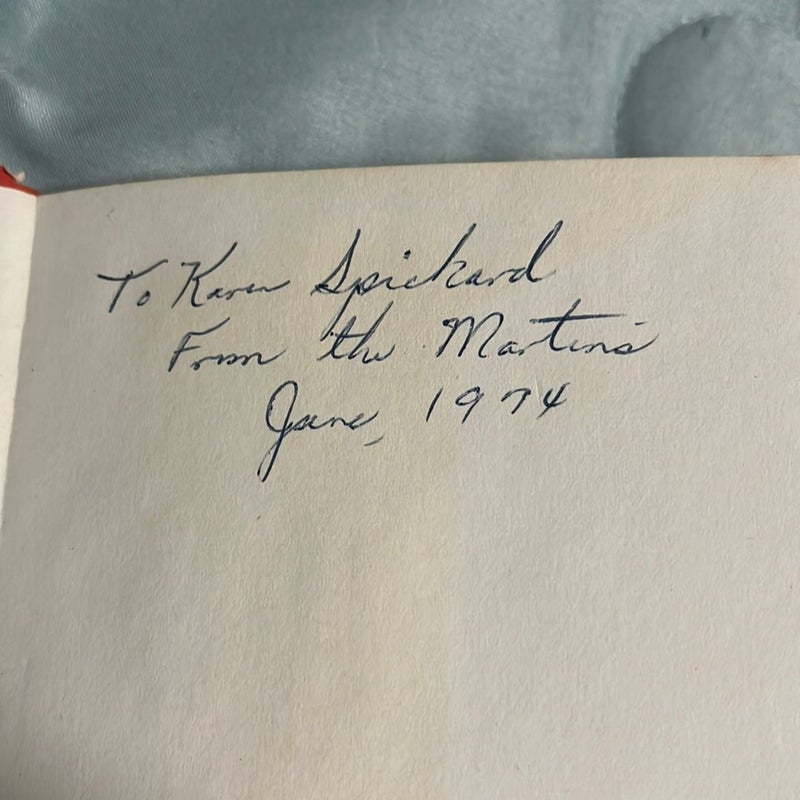 To Karen Spickard
From the Martins
June, 1974